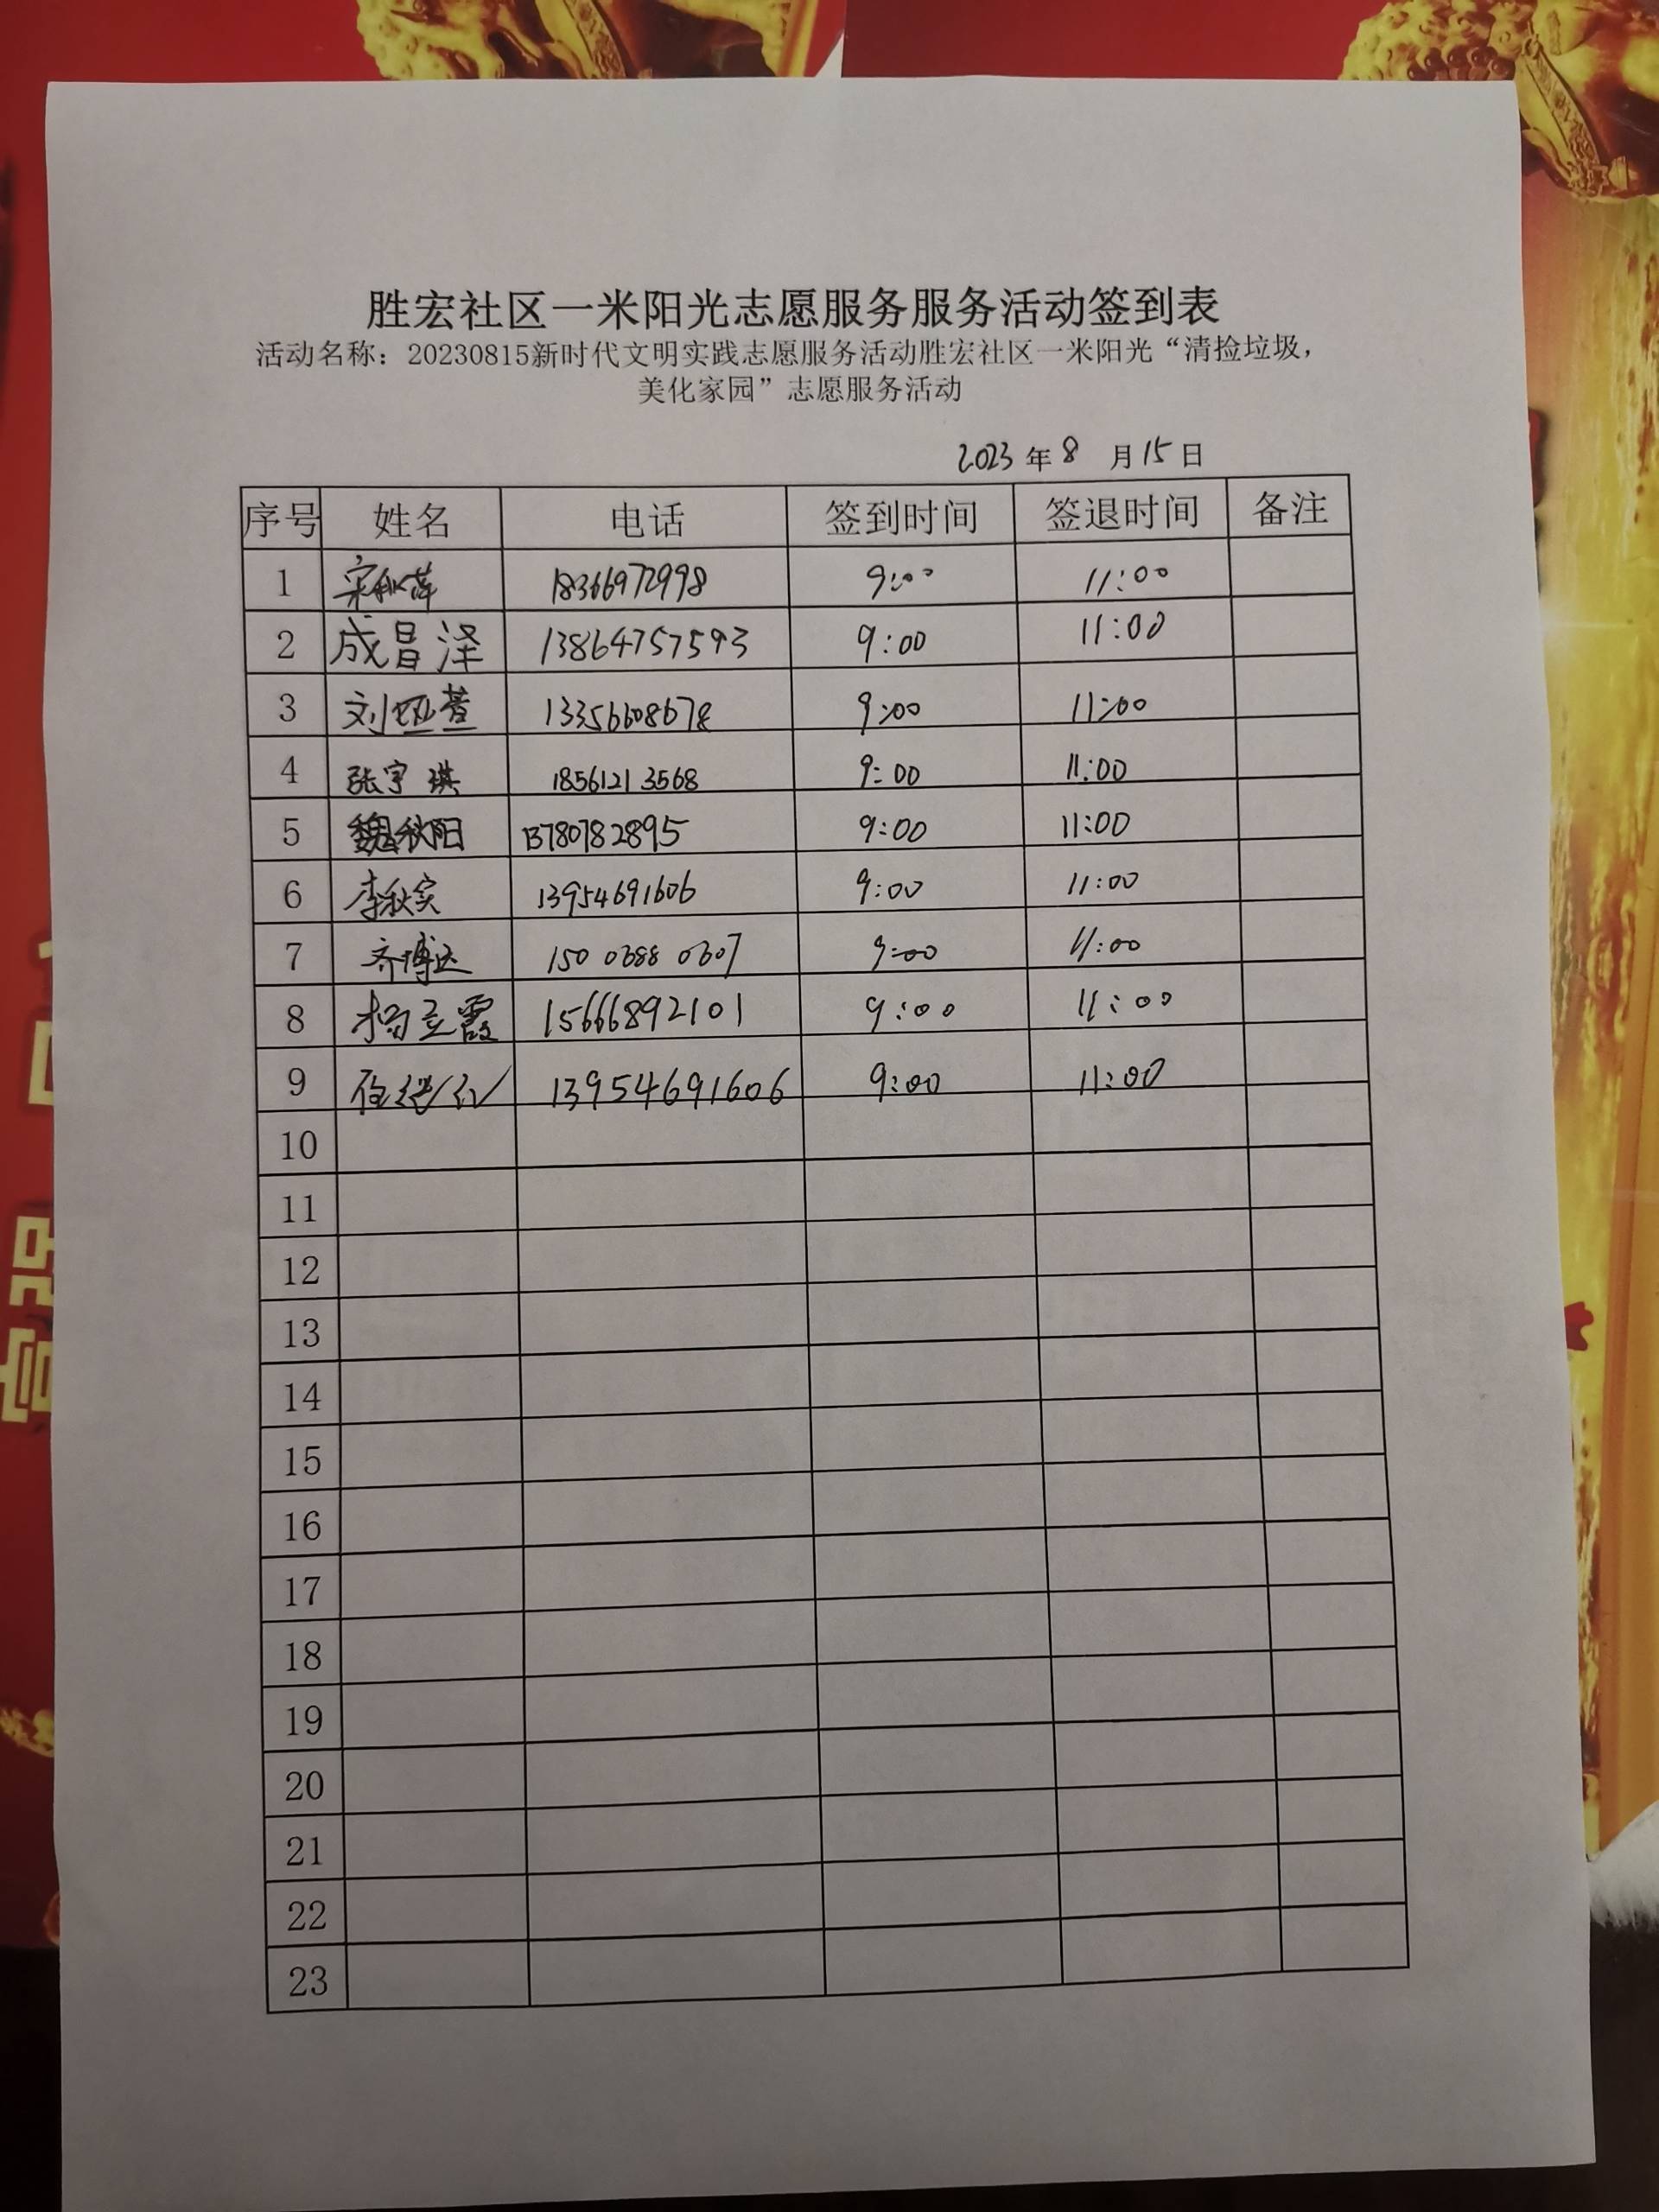 胜宏社区一米阳光志愿服务服务活动签到表
活动名称：20230815新时代文明实践志愿服务活动胜宏社区一米阳光“清捡垃圾，
美化家园”志愿服务活动
2023 年 8 月 15 日
序号 姓名 电话 签到时间 签退时间 备注
1 宋秋萍 18366972998 9:00 11:00
2 成昌泽 13864757593 9:00 11:00
3 刘娅萱 13356608678 9:00 11:00
4 张宇琪 18561213568 9:00 11:00
5 魏秋阳 13780782895 9:00 11:00
6 李秋实 13954691606 9:00 11:00
7 齐博达 150 0388 0307 9:00 11:00
8 杨立霞 15666892101 9:00 11:00
9 13954691606 9:00 11:00
10
11
12
13
14
15
16
17
18
19
20
21
22
23